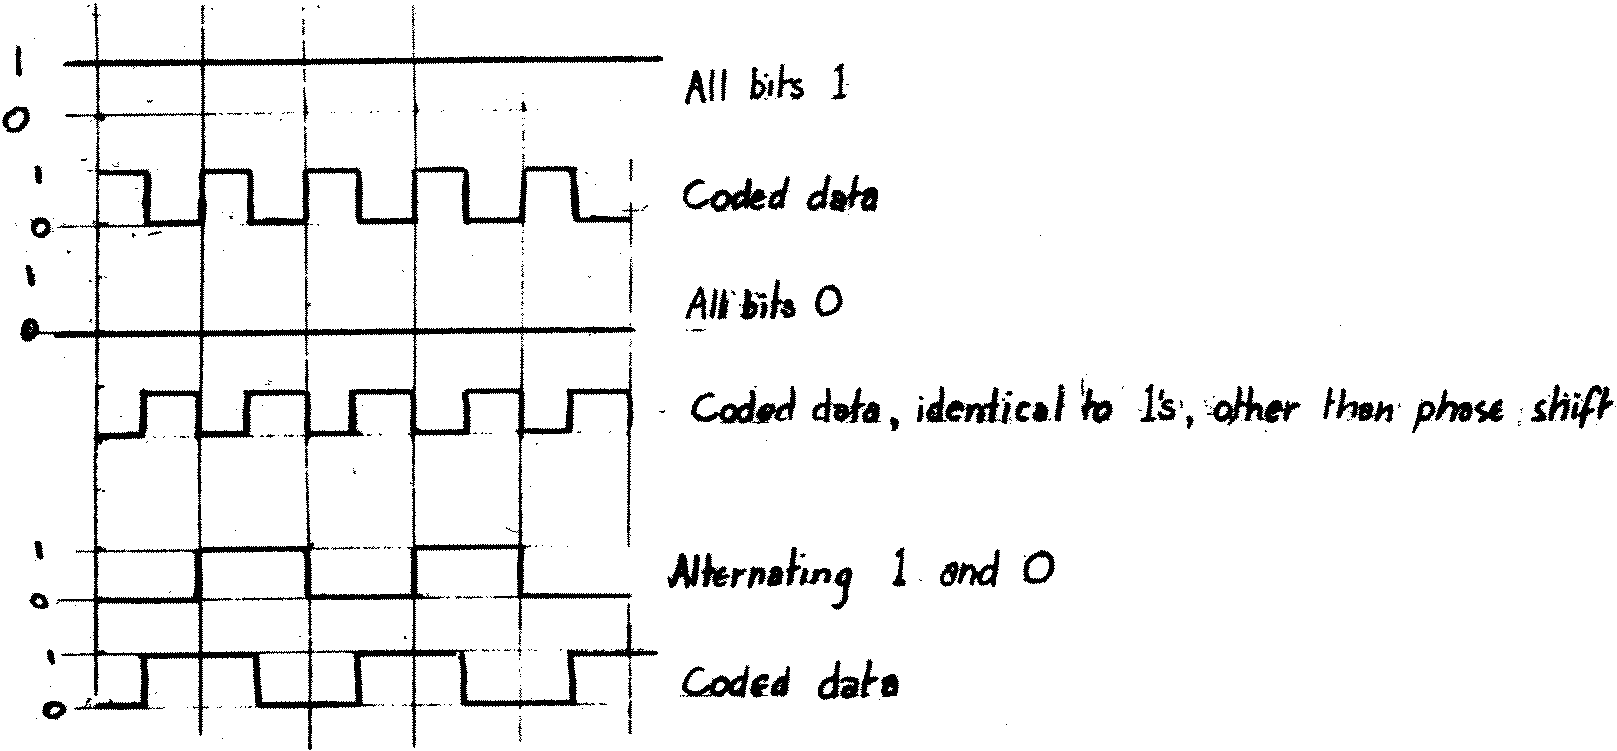 1
All bits 1
0
1
Coded data
0
1
All bits 0
0
Coded data, identical to 1's, other than phase shift
1
Alternating 1 and 0
0
1
Coded data
0